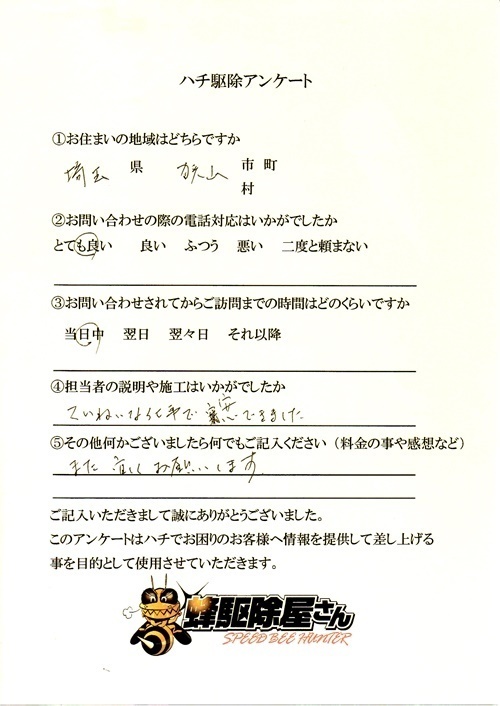 ハチ駆除アンケート
①お住まいの地域はどちらですか
埼玉 県 狭山 市 町
村
②お問い合わせの際の電話対応はいかがでしたか
とても良い 良い ふつう 悪い 二度と頼まない
③お問い合わせされてからご訪問までの時間はどのくらいですか
当日中 翌日 翌々日 それ以降
④担当者の説明や施工はいかがでしたか
ていねいな仕事で安心できました
⑤その他何かございましたら何でもご記入ください（料金の事や感想など）
また宜しくお願いします
ご記入いただきまして誠にありがとうございました。
このアンケートはハチでお困りのお客様へ情報を提供して差し上げる
事を目的として使用させていただきます。
蜂駆除屋さん
SPEED BEE HUNTER